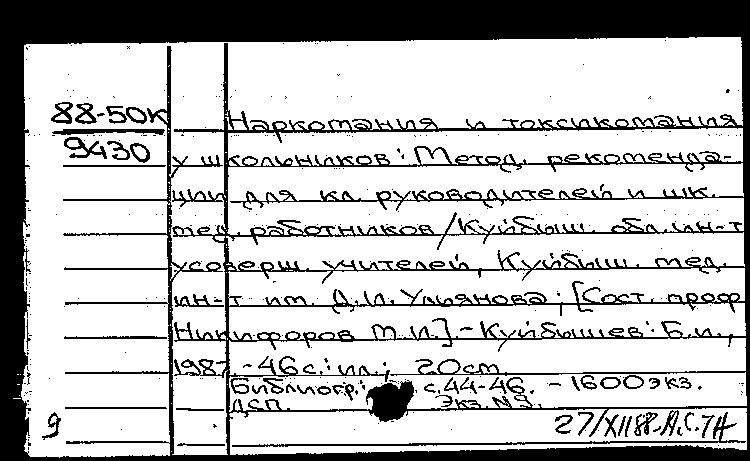 88-50К
9430
Наркомания и токсикомания
у школьников: Метод. рекоменда-
ции для кл. руководителей и шк.
мед. работников/Куйбыш. обл. ин-т
усоверш. учителей, Куйбыш. мед.
ин-т им. Д.И. Ульянова; [Сост. проф
Никифоров М.И.]-Куйбышев: Б.и.,
1987.-46с.: ил.; 20см.
Библиогр.: с.44-46. - 1600экз.
ДСП. Экз. №9.
9
27/XII88